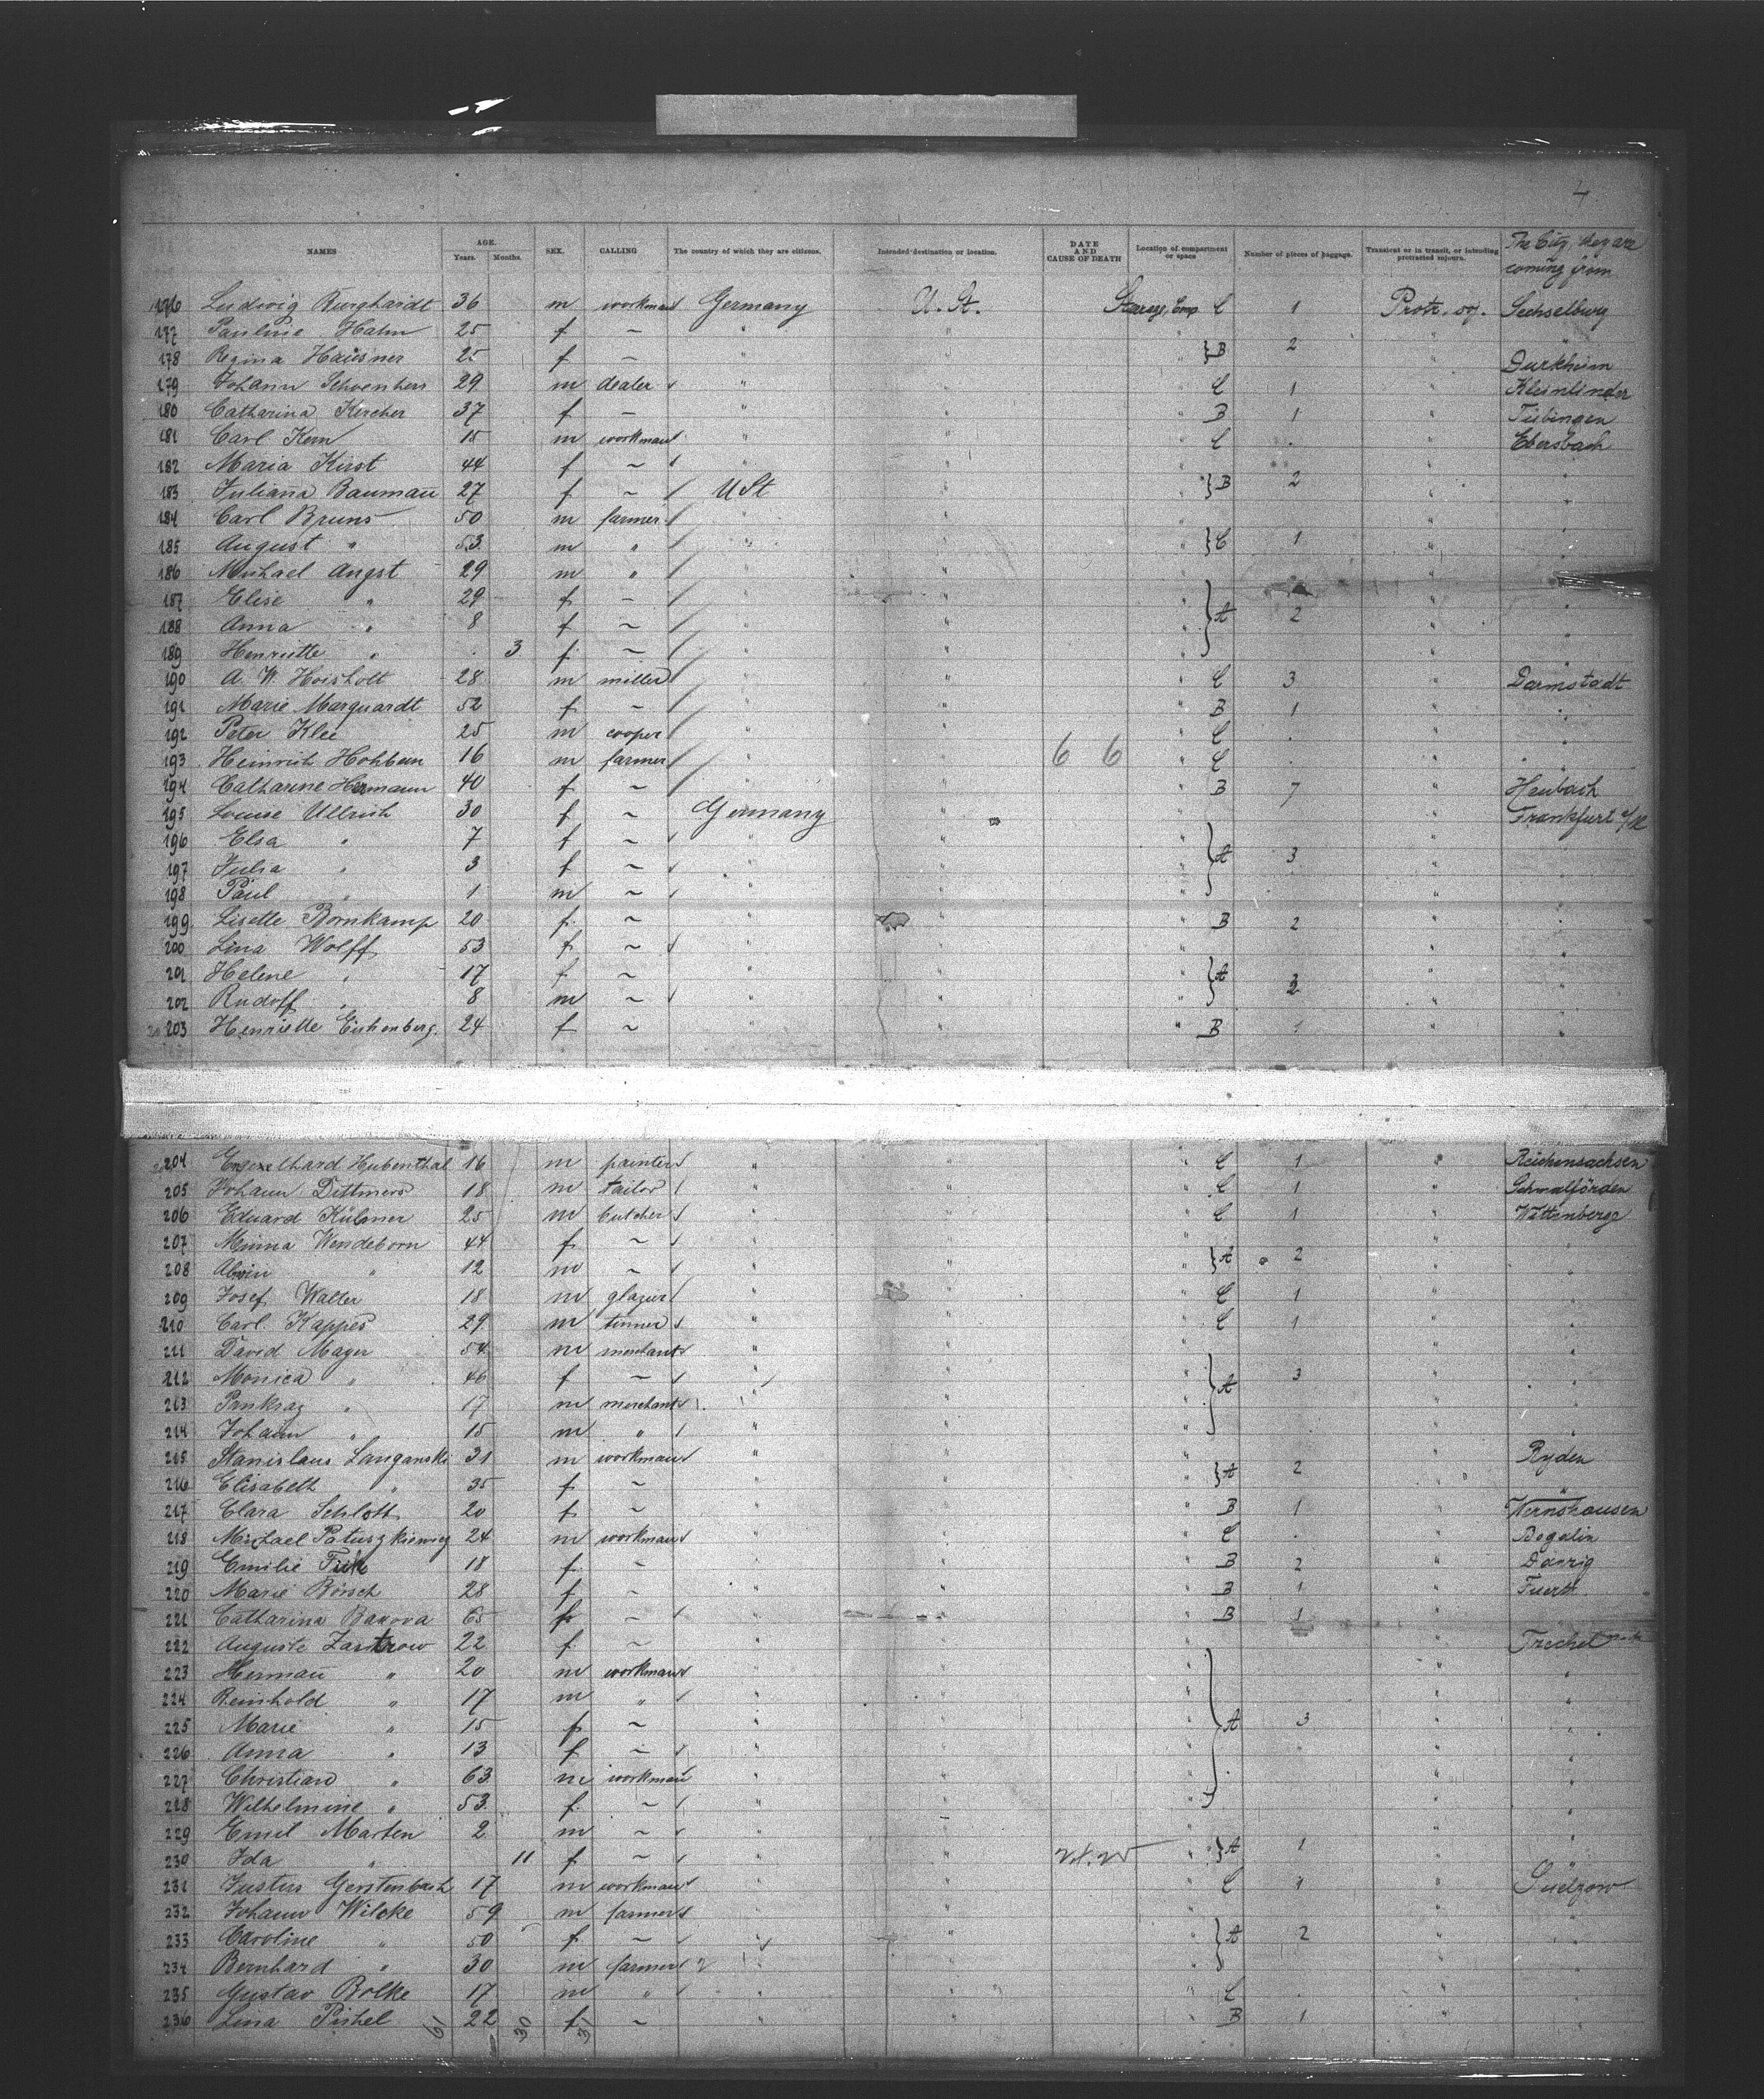 4
NAMES AGE. Years. Months. SEX. CALLING The country of which they are citizens. Intended destination or location. DATE AND CAUSE OF DEATH Location of compartment or space Number of pieces of baggage. Transient or in transit, or intending protracted sojourn. The City, they are coming from
176 Ludwig Burghardt 36 m workman Germany U. St. C 1 Sechselburg
177 Pauline Hahn 25 f ~ "
178 Regina Häusner 25 f ~ " } B 2 Durkheim
179 Johann Schoenherr 29 m dealer " C 1 Kleinlinder
180 Catharina Kercher 37 f ~ " B 1 Tübingen
181 Carl Kern 15 m workman " C . Ebersbach
182 Maria Kirst 44 f ~ "
183 Juliana Bauman 27 f ~ U St } B 2 "
184 Carl Bruns 50 m farmer "
185 August " 53 m " " } C 1 "
186 Michael Angst 29 m " "
187 Elise " 29 f ~ "
188 Anna " 8 f ~ " } A 2 "
189 Henriette " . 3 f ~ "
190 A. W. Hoisholt 28 m miller " C 3 Darmstadt
191 Marie Marquardt 52 f ~ " B 1 "
192 Peter Klee 25 m cooper " C . "
193 Heinrich Hohbein 16 m farmer " 6 6 C . "
194 Catharine Hermann 40 f ~ " B 7 Heubach
195 Louise Ullrich 30 f ~ Germany Frankfurt a/M
196 Elsa " 7 f ~ "
197 Julia " 3 f ~ " } A 3
198 Paul " 1 m ~ "
199 Lisette Bornkamp 20 f ~ " B 2 "
200 Lina Wolff 53 f ~ "
201 Helene " 17 f ~ " } A
202 Rudolf " 8 m ~ "
203 Henriette Eichenberg. 24 f ~ " B 1 "
204 Engelhard Hubenthal 16 m painter " C 1 Reichensachsen
205 Johann Dittmers 18 m tailor " C 1 Schmalförden
206 Eduard Külmer 25 m butcher " C 1 Wittenberge
207 Minna Wendeborn 44 f ~ "
208 Alwin " 12 m ~ " } A 2 "
209 Josef Walter 18 m glazier " C 1 "
210 Carl Kappes 29 m tinner " C 1 "
211 David Mayer 54 m merchant "
212 Monica " 46 f ~ " } A 3 "
213 Pankraz " 17 m merchant "
214 Johann " 15 m " "
215 Stanislaus Langanski 31 m workman " Ryden
216 Elisabeth " 35 f ~ " } A 2 "
217 Clara Schlott 20 f ~ " B 1 Wernshausen
218 Michael 24 m workman " C . Begelin
219 Emilie 18 f ~ " B 2 Danzig
220 Marie Börsch 28 f ~ " B 1 Fuerth
221 Catharina Baxova 65 f ~ " B 1
222 Auguste Zastrow 22 f ~ " Trechel
223 Herman " 20 m workman " "
224 Reinhold " 17 m " " "
225 Marie " 15 f ~ " } A 3 "
226 Anna " 13 f ~ " "
227 Christian " 63 m workman " "
228 Wilhelmine " 53 f ~ " "
229 Emil Marten 2 m ~ " "
230 Ida " 11 f ~ " } A 1 "
231 Justus Gerstenbach 17 m workman " C 1 Guelzow
232 Johann Wilcke 59 m farmer " "
233 Caroline " 50 f ~ " } A 2 "
234 Bernhard " 30 m farmer " "
235 Gustav Bolke 17 m " " C . "
236 Lina Pichel 22 f ~ " B 1 "
61 30 31